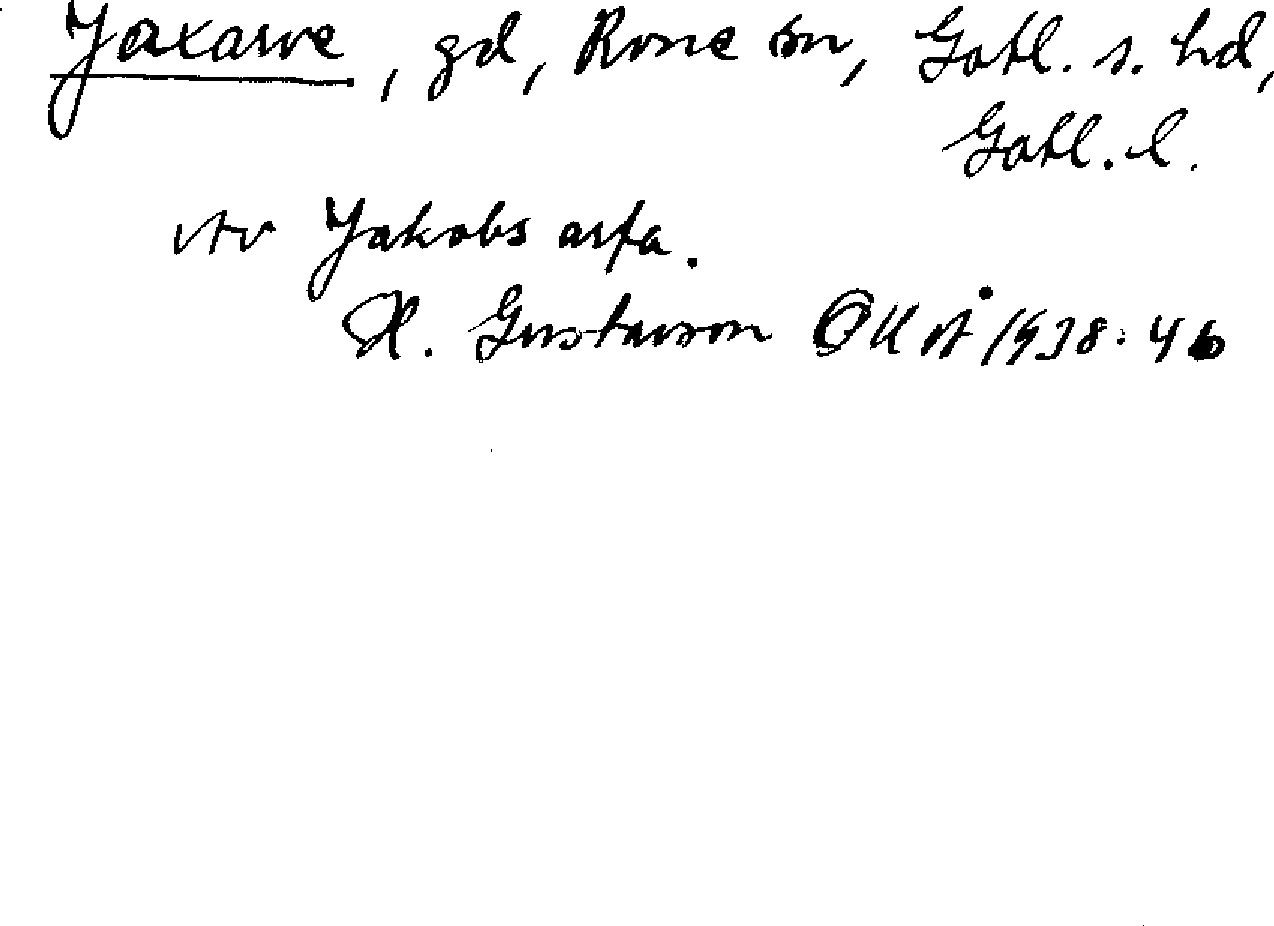 Jaxarve, gd, Rone sn, Gotl. s. hd,
Gotl. l.
Av Jakobs arfa.
H. Gustavson OKÅ 1938: 46